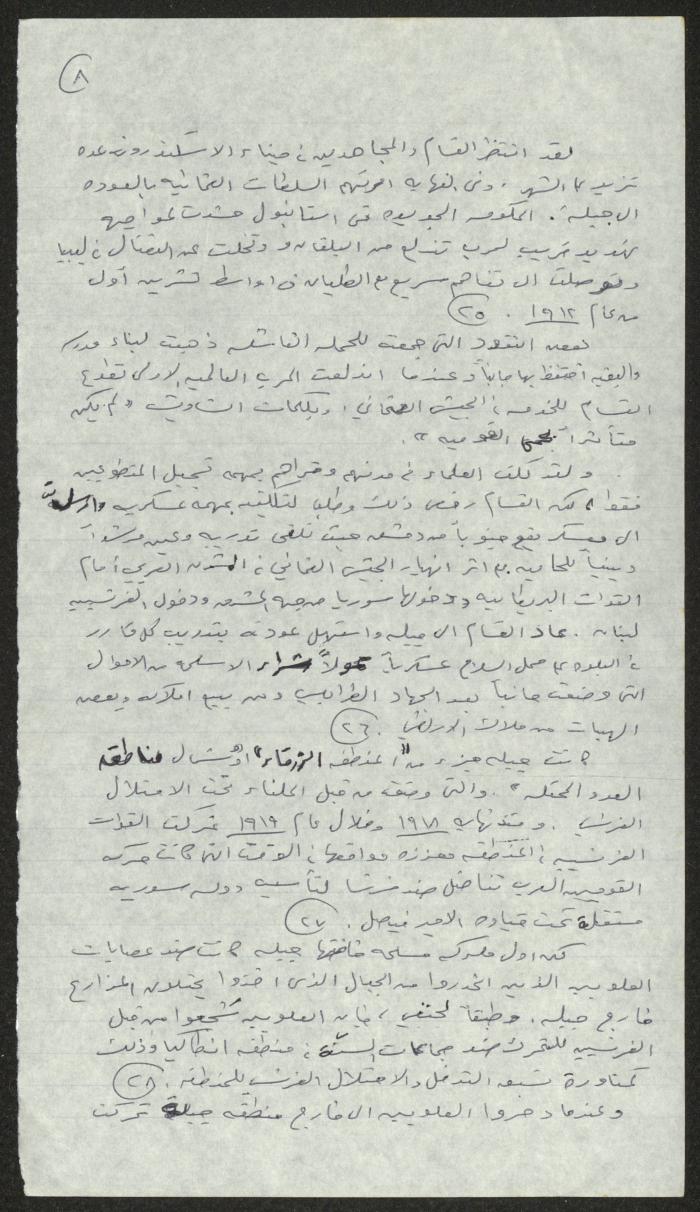 ٨
لقد انتظر القسام والمجاهدين في ميناء الاسكندرونه مده
تزيد عن الشهر. وفي النهايه امرتهم السلطات العثمانيه بالعوده
الى جبله. الحكومه الجديده في استانبول حشدت لمواجهة
تهديد قريب لحرب تندلع من البلقان وتخلت عن القتال في ليبيا
وتوصلت الى تفاهم سريع مع الطليان في اواسط تشرين أول
من عام ١٩١٢. ٢٥
بعض النقود التي جمعت للحمله الفاشله ذهبت لبناء مدرسه
والبقيه احتفظ بها جانباً وعندما اندلعت الحرب العالميه الاولى تطوع
القسام للخدمه في الجيش العثماني، وبكلمات الشاويش "لم يكن
متأثراً بحمى القوميه".
ولقد كلف العلماء في مدنهم وقراهم بمهمه تسجيل المتطوعين
فقط، لكن القسام رفض ذلك وطلب تكليفه بمهمه عسكريه وارسل
الى معسكر يقع جنوباً من دمشق حيث تلقى تدريبه وعين مرشداً
دينياً للحاميه. اثر انهيار الجيش العثماني في المشرق العربي أمام
القوات البريطانيه ودخولها سوريا من جهه المشرق ودخول الفرنسيين
لبنان. عاد القسام الى جبله واستهل عودته بتدريب كل قادر
في البلده على حمل السلاح عسكرياً ممولاً شراء الاسلحه من الاموال
التي وضعت جانباً بعد الجهاد الطرابلسي ومن بيع املاكه وبعض
الهبات من ملاك الاراضي. ٢٦
كانت جبله جزء من "المنطقه الزرقاء" او شمال مناطق
العدو المحتله". والتي وضعت من قبل الحلفاء تحت الاحتلال
الفرنسي. ومنذ نهايه ١٩١٨ وخلال عام ١٩١٩ تحركت القوات
الفرنسيه في المنطقه معززه مواقعها في الوقت التي كانت حركه
القوميين العرب تناضل ضد فرنسا لتأسيس دوله سوريه
مستقلة تحت قياده الامير فيصل. ٢٧
لكن اول معركه مسلحه خاضتها جبله كانت ضد عصابات
العلويين الذين انحدروا من الجبال الذي اخذوا يحتلون المزارع
خارج جبله. وطبقاً لحنفي، فإن العلويين شُجعوا من قبل
الفرنسيين للتحرك ضد جماعات السنّة في منطقه انطاكيا وذلك
كمناورة تسبق التدخل والاحتلال الفرنسي للمنطقه. ٢٨
وعندما دحروا العلويين الى خارج منطقه جبلة تحركت